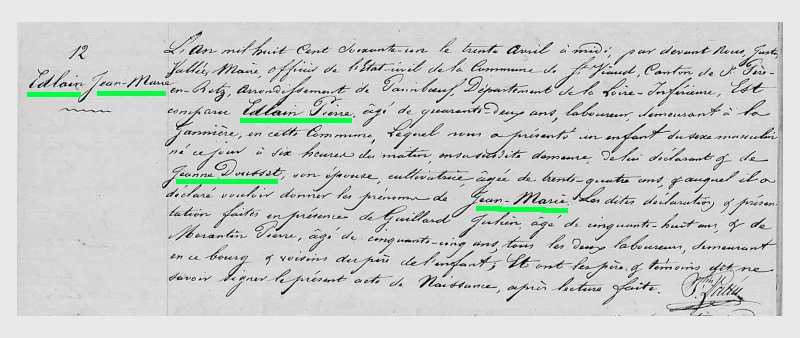 12
Edlain Jean-Marie
L'An mil huit Cent Soixante-un le trente Avril à midi, par devant Nous, Juste
Vallée, Maire, officier de l'Etat-civil de la Commune de St Viaud, Canton de St Père-
en-Retz, Arrondissement de Paimboeuf, Département de la Loire-Inférieure, Est
comparu Edlain Pierre, âgé de quarante-deux ans, laboureur, demeurant à la
Jannière, en cette Commune, Lequel nous a présenté un enfant du sexe masculin
né ce jour à six heures du matin, en susdite demeure, de lui déclarant & de
Jeanne Dousset, son épouse, cultivatrice âgée de trente-quatre ans, & auquel il a
déclaré vouloir donner les prénoms de Jean-Marie. Les dites déclaration & présen-
tation faites en présence de Guillard Julien, âgé de cinquante-huit ans, & de
Morantin Pierre, âgé de cinquante-cinq ans, tous les deux laboureurs, demeurant
en ce bourg & voisins du père de l'enfant; Et ont les père & témoins dit ne
savoir signer le présent acte de Naissance, après lecture faite.